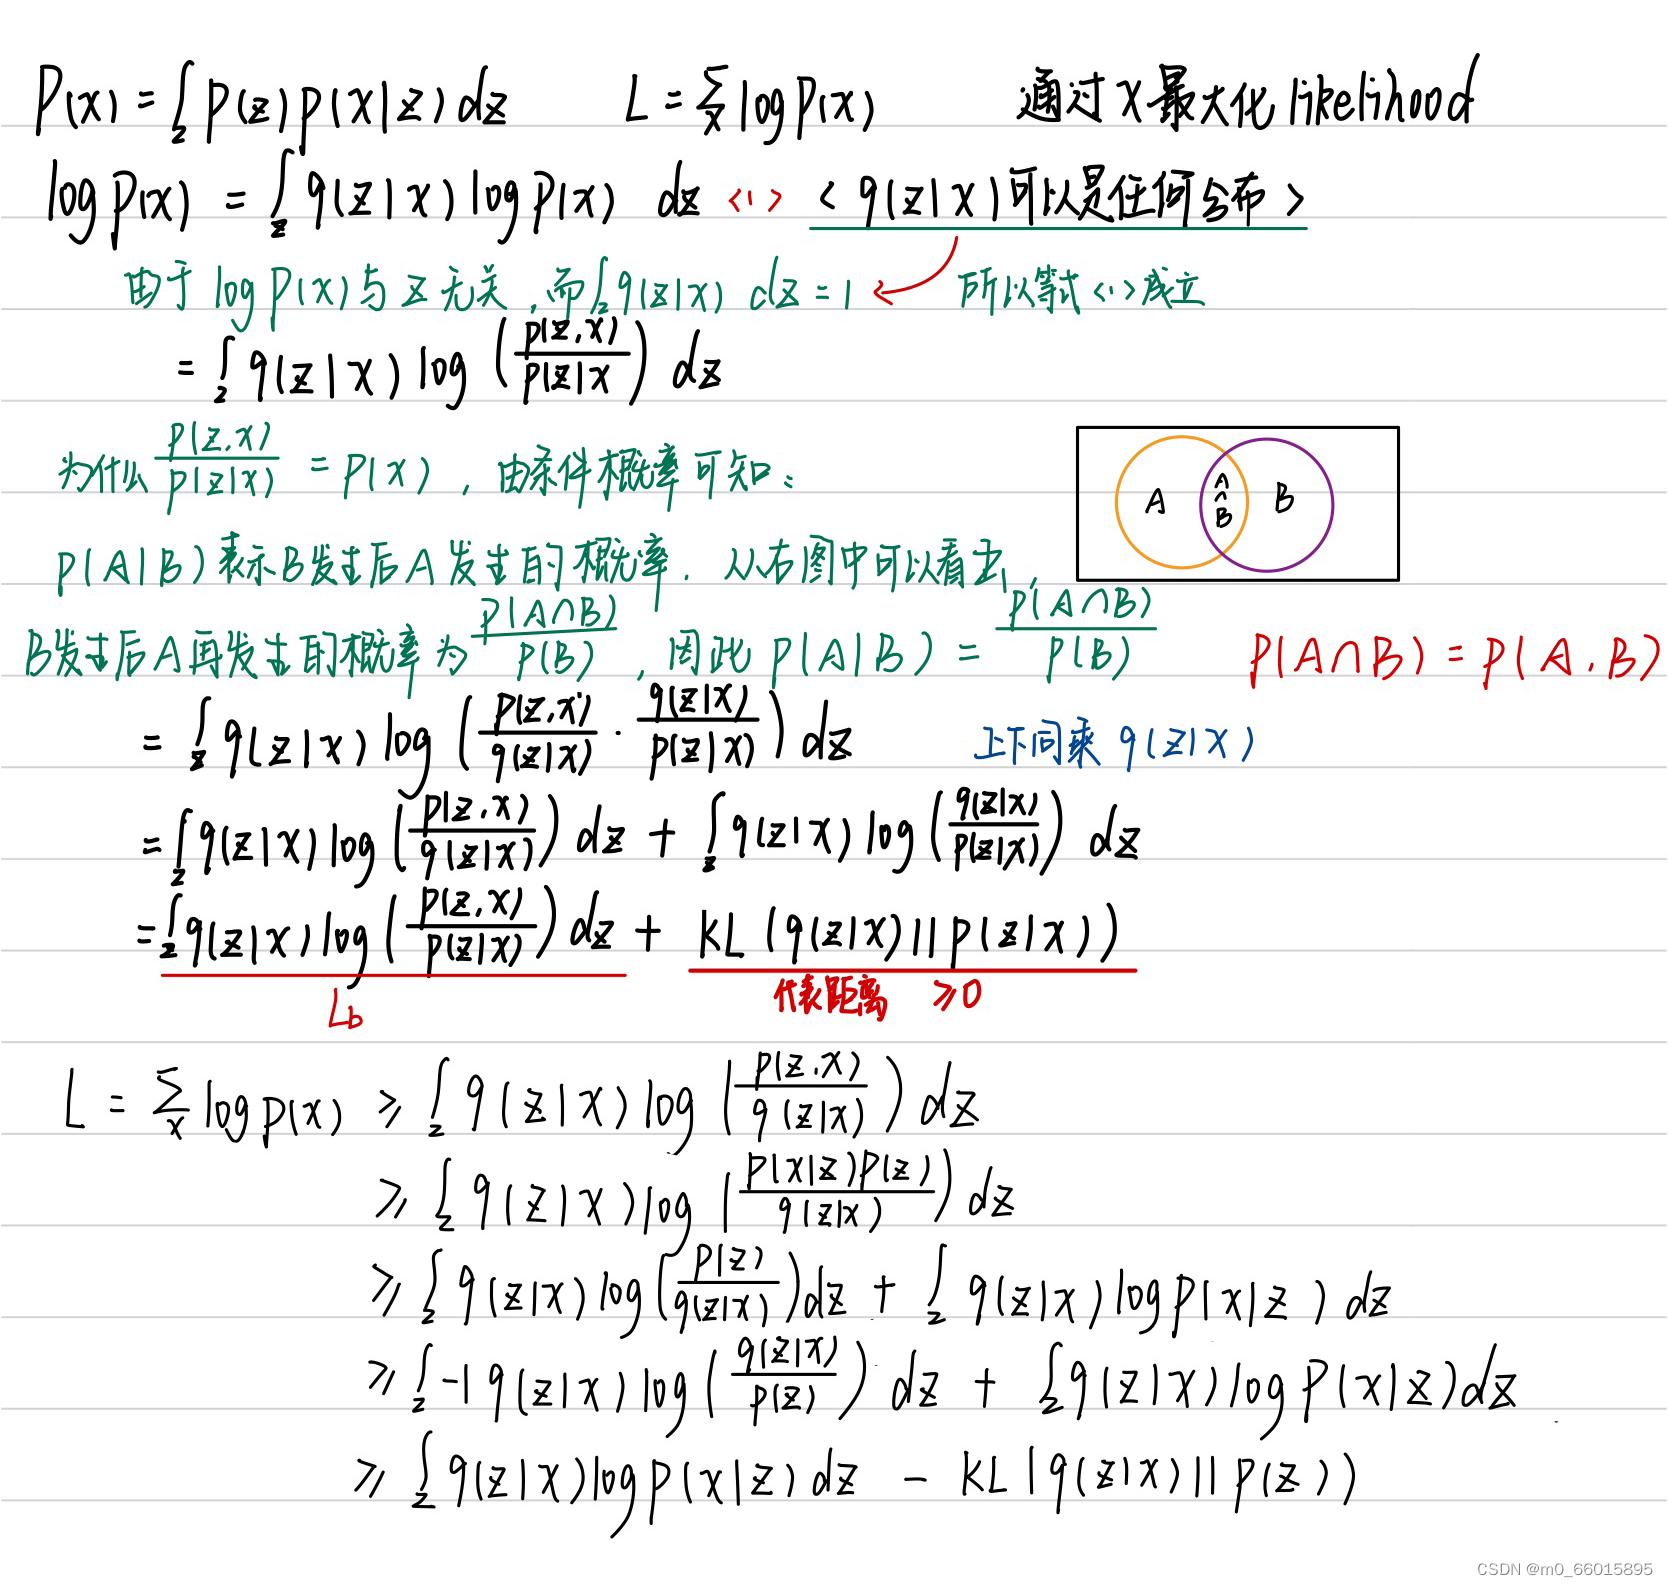 P(x) = ∫_z p(z)p(x|z)dz L = Σ_x log p(x) 通过x最大化 likelihood
log p(x) = ∫_z q(z|x) log p(x) dz <1> <q(z|x)可以是任何分布>
由于 log p(x) 与 z 无关,而∫_z q(z|x) dz = 1 所以等式<1>成立
= ∫_z q(z|x) log (p(z,x) / p(z|x) dz
为什么 p(z,x) / p(z|x) = p(x),由条件概率可知:
A A∩B B
p(A|B)表示B发生后A发生的概率. 从右图中可以看出,
B发生后A再发生的概率为 p(A∩B) / p(B) ,因此 p(A|B) = p(A∩B) / p(B) p(A∩B) = p(A,B)
= ∫_z q(z|x) log (p(z,x) / q(z|x) · q(z|x) / p(z|x)) dz 上下同乘 q(z|x)
= ∫_z q(z|x) log (p(z,x) / q(z|x)) dz + ∫_z q(z|x) log (q(z|x) / p(z|x)) dz
= ∫_z q(z|x) log (p(z,x) / p(z|x)) dz + KL (q(z|x)||p(z|x))
Lb 代表距离 ≥0
L = Σ_x log p(x) ≥ ∫_z q(z|x) log (p(z,x) / q(z|x)) dz
≥ ∫_z q(z|x) log (p(x|z)p(z) / q(z|x)) dz
≥ ∫_z q(z|x) log (p(z) / q(z|x)) dz + ∫_z q(z|x) log p(x|z) dz
≥ ∫_z -1 q(z|x) log (q(z|x) / p(z)) dz + ∫_z q(z|x) log p(x|z) dz
≥ ∫_z q(z|x) log p(x|z) dz - KL (q(z|x)||p(z))
CSDN @m0_66015895